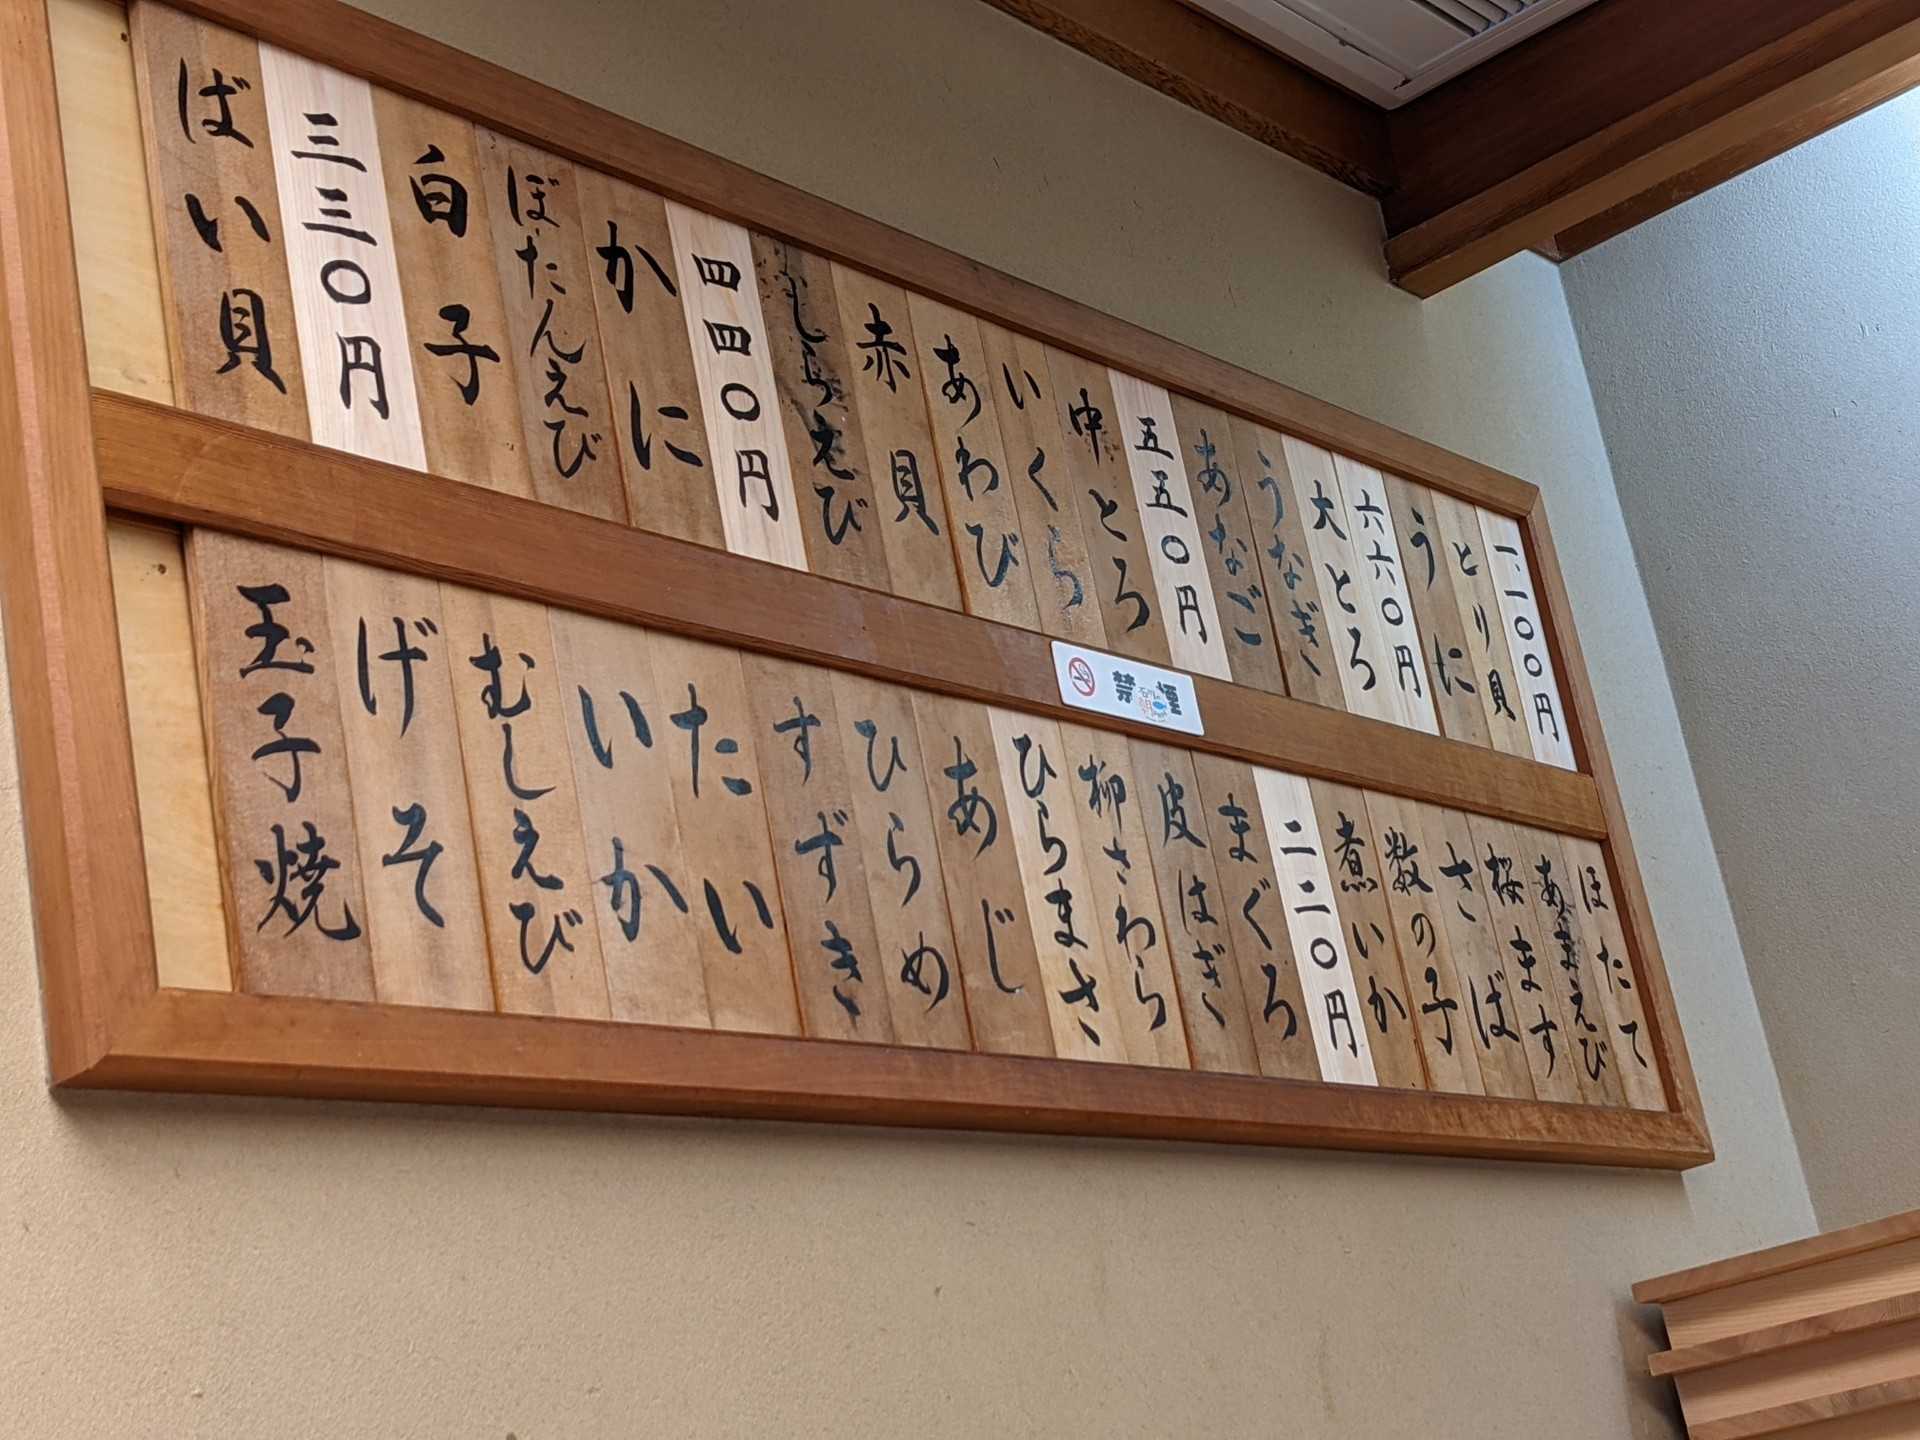 一、一〇〇円
とり貝
うに
六六〇円
大とろ
うなぎ
あなご
五五〇円
中とろ
いくら
あわび
赤貝
しらえび
四四〇円
かに
ぼたんえび
白子
三三〇円
ばい貝
禁煙
ほたて
あまえび
桜ます
さば
数の子
煮いか
二二〇円
まぐろ
皮はぎ
柳さわら
ひらまさ
あじ
ひらめ
すずき
たい
いか
むしえび
げそ
玉子焼